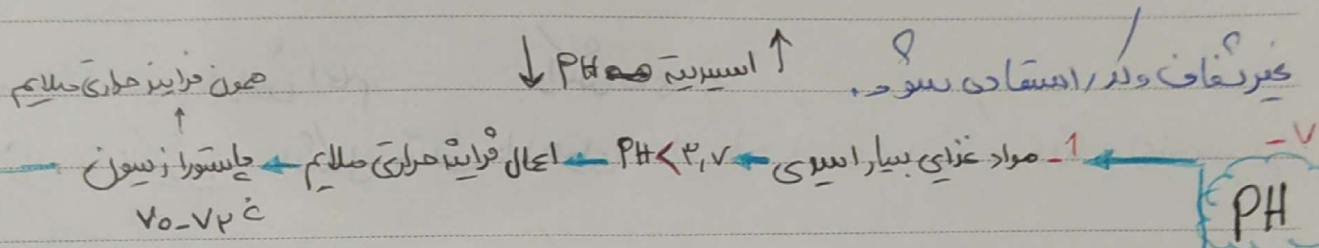 غیر شفاف و کدر استفاده شود. ↑ اسیدیته PH ↓
همون فرایند حرارتی ملایم
↑
۷-
PH ← 1- مواد غذایی بسیار اسیدی ← PH < ۳,۷ ← اعمال فرایند حرارتی ملایم ← پاستورازسیون ←
۷۰-۷۲ ْC